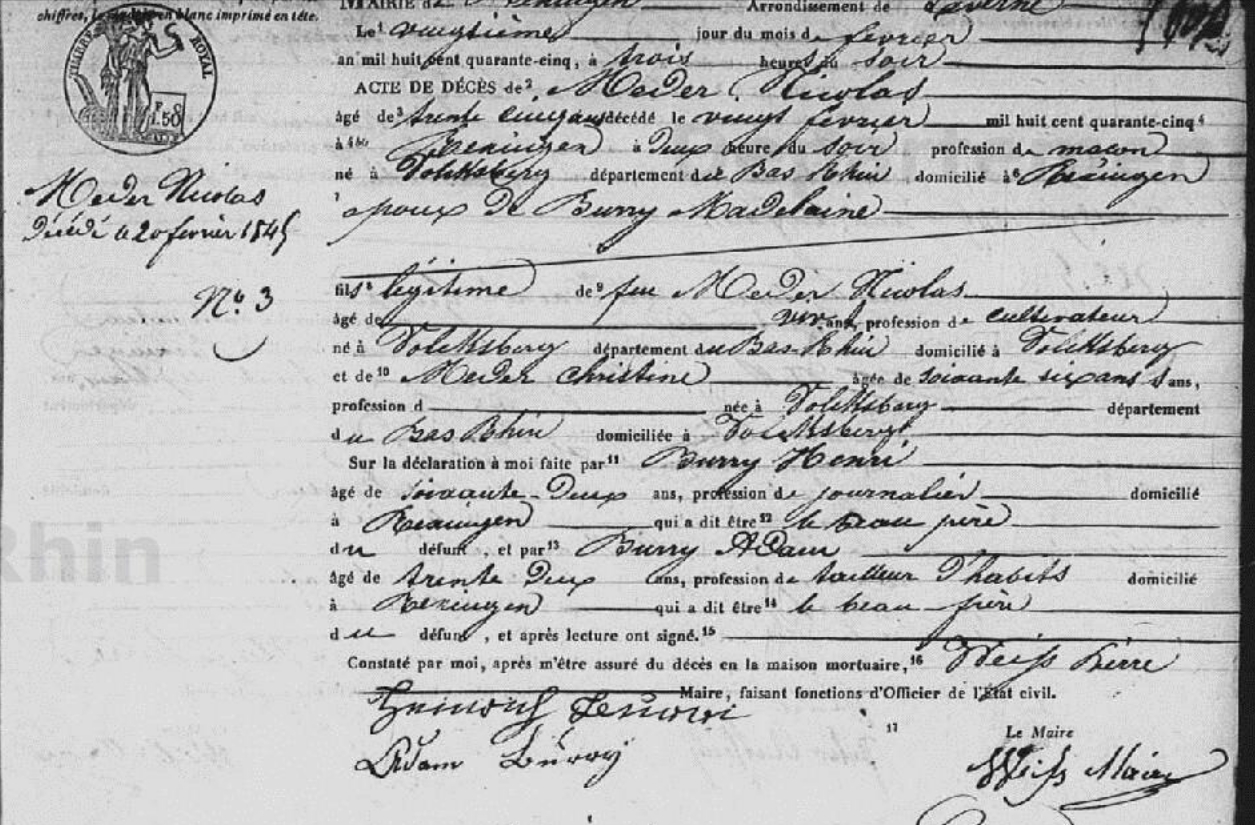 chiffres, en blanc imprimé en tête.
MAIRIE d Arrondissement de Saverne
Le¹ vingtième jour du mois de fevrier
an mil huit cent quarante-cinq, à trois heures du soir
ACTE DE DÉCÈS de² Meder Nicolas
âgé de³ trente cinq ans décédé le vingt fevrier mil huit cent quarante-cinq⁴
à⁴ ᵇⁱˢ Rexingen à deux heure du soir profession de macon
né à⁵ Volksberg département du Bas Rhin domicilié à⁶ Rexingen
⁷ epoux de Burry Madelaine
TIMBRE ROYAL
F. 1.50
Meder Nicolas
Décédé le 20 fevrier 1845
Nº 3
fils⁸ légitime de⁹ feu Meder Nicolas
âgé de ans, profession de cultivateur
né à Volksberg département du Bas-Rhin domicilié à Volksberg
et de¹⁰ Meder Christine âgée de soixante six ans ans,
profession d née à Volksberg département
du Bas Rhin domiciliée à Volksberg
Sur la déclaration à moi faite par¹¹ Burry Henri
âgé de soixante-deux ans, profession de journalier domicilié
à Rexingen qui a dit être¹² le beau père
du défunt, et par¹³ Burry Adam
âgé de trente deux ans, profession de tailleur d'habits domicilié
à Rexingen qui a dit être¹⁴ le beau-frère
du défunt, et après lecture ont signé.¹⁵
Constaté par moi, après m'être assuré du décès en la maison mortuaire,¹⁶ Weiss Pierre
Maire, faisant fonctions d'Officier de l'État civil.
Heinrich
17 Le Maire
Adam Burry
Weiss Maire
Rhin